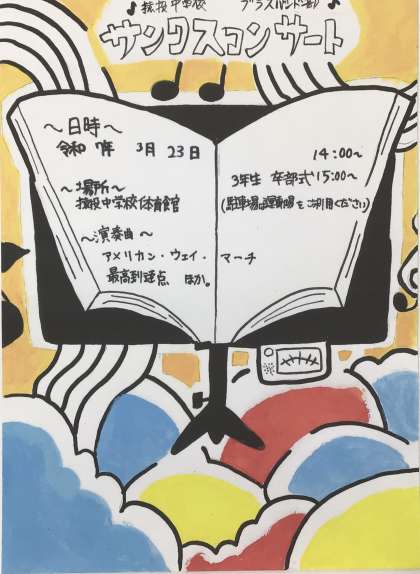 猿投中学校 ブラスバンド部
サンクスコンサート
〜日時〜
令和 7年 3月 23日 14:00〜
3年生 卒部式 15:00〜
〜場所〜
猿投中学校体育館
(駐車場は運動場をご利用ください)
〜演奏曲〜
アメリカン・ウェイ・マーチ
最高到達点 ほか。